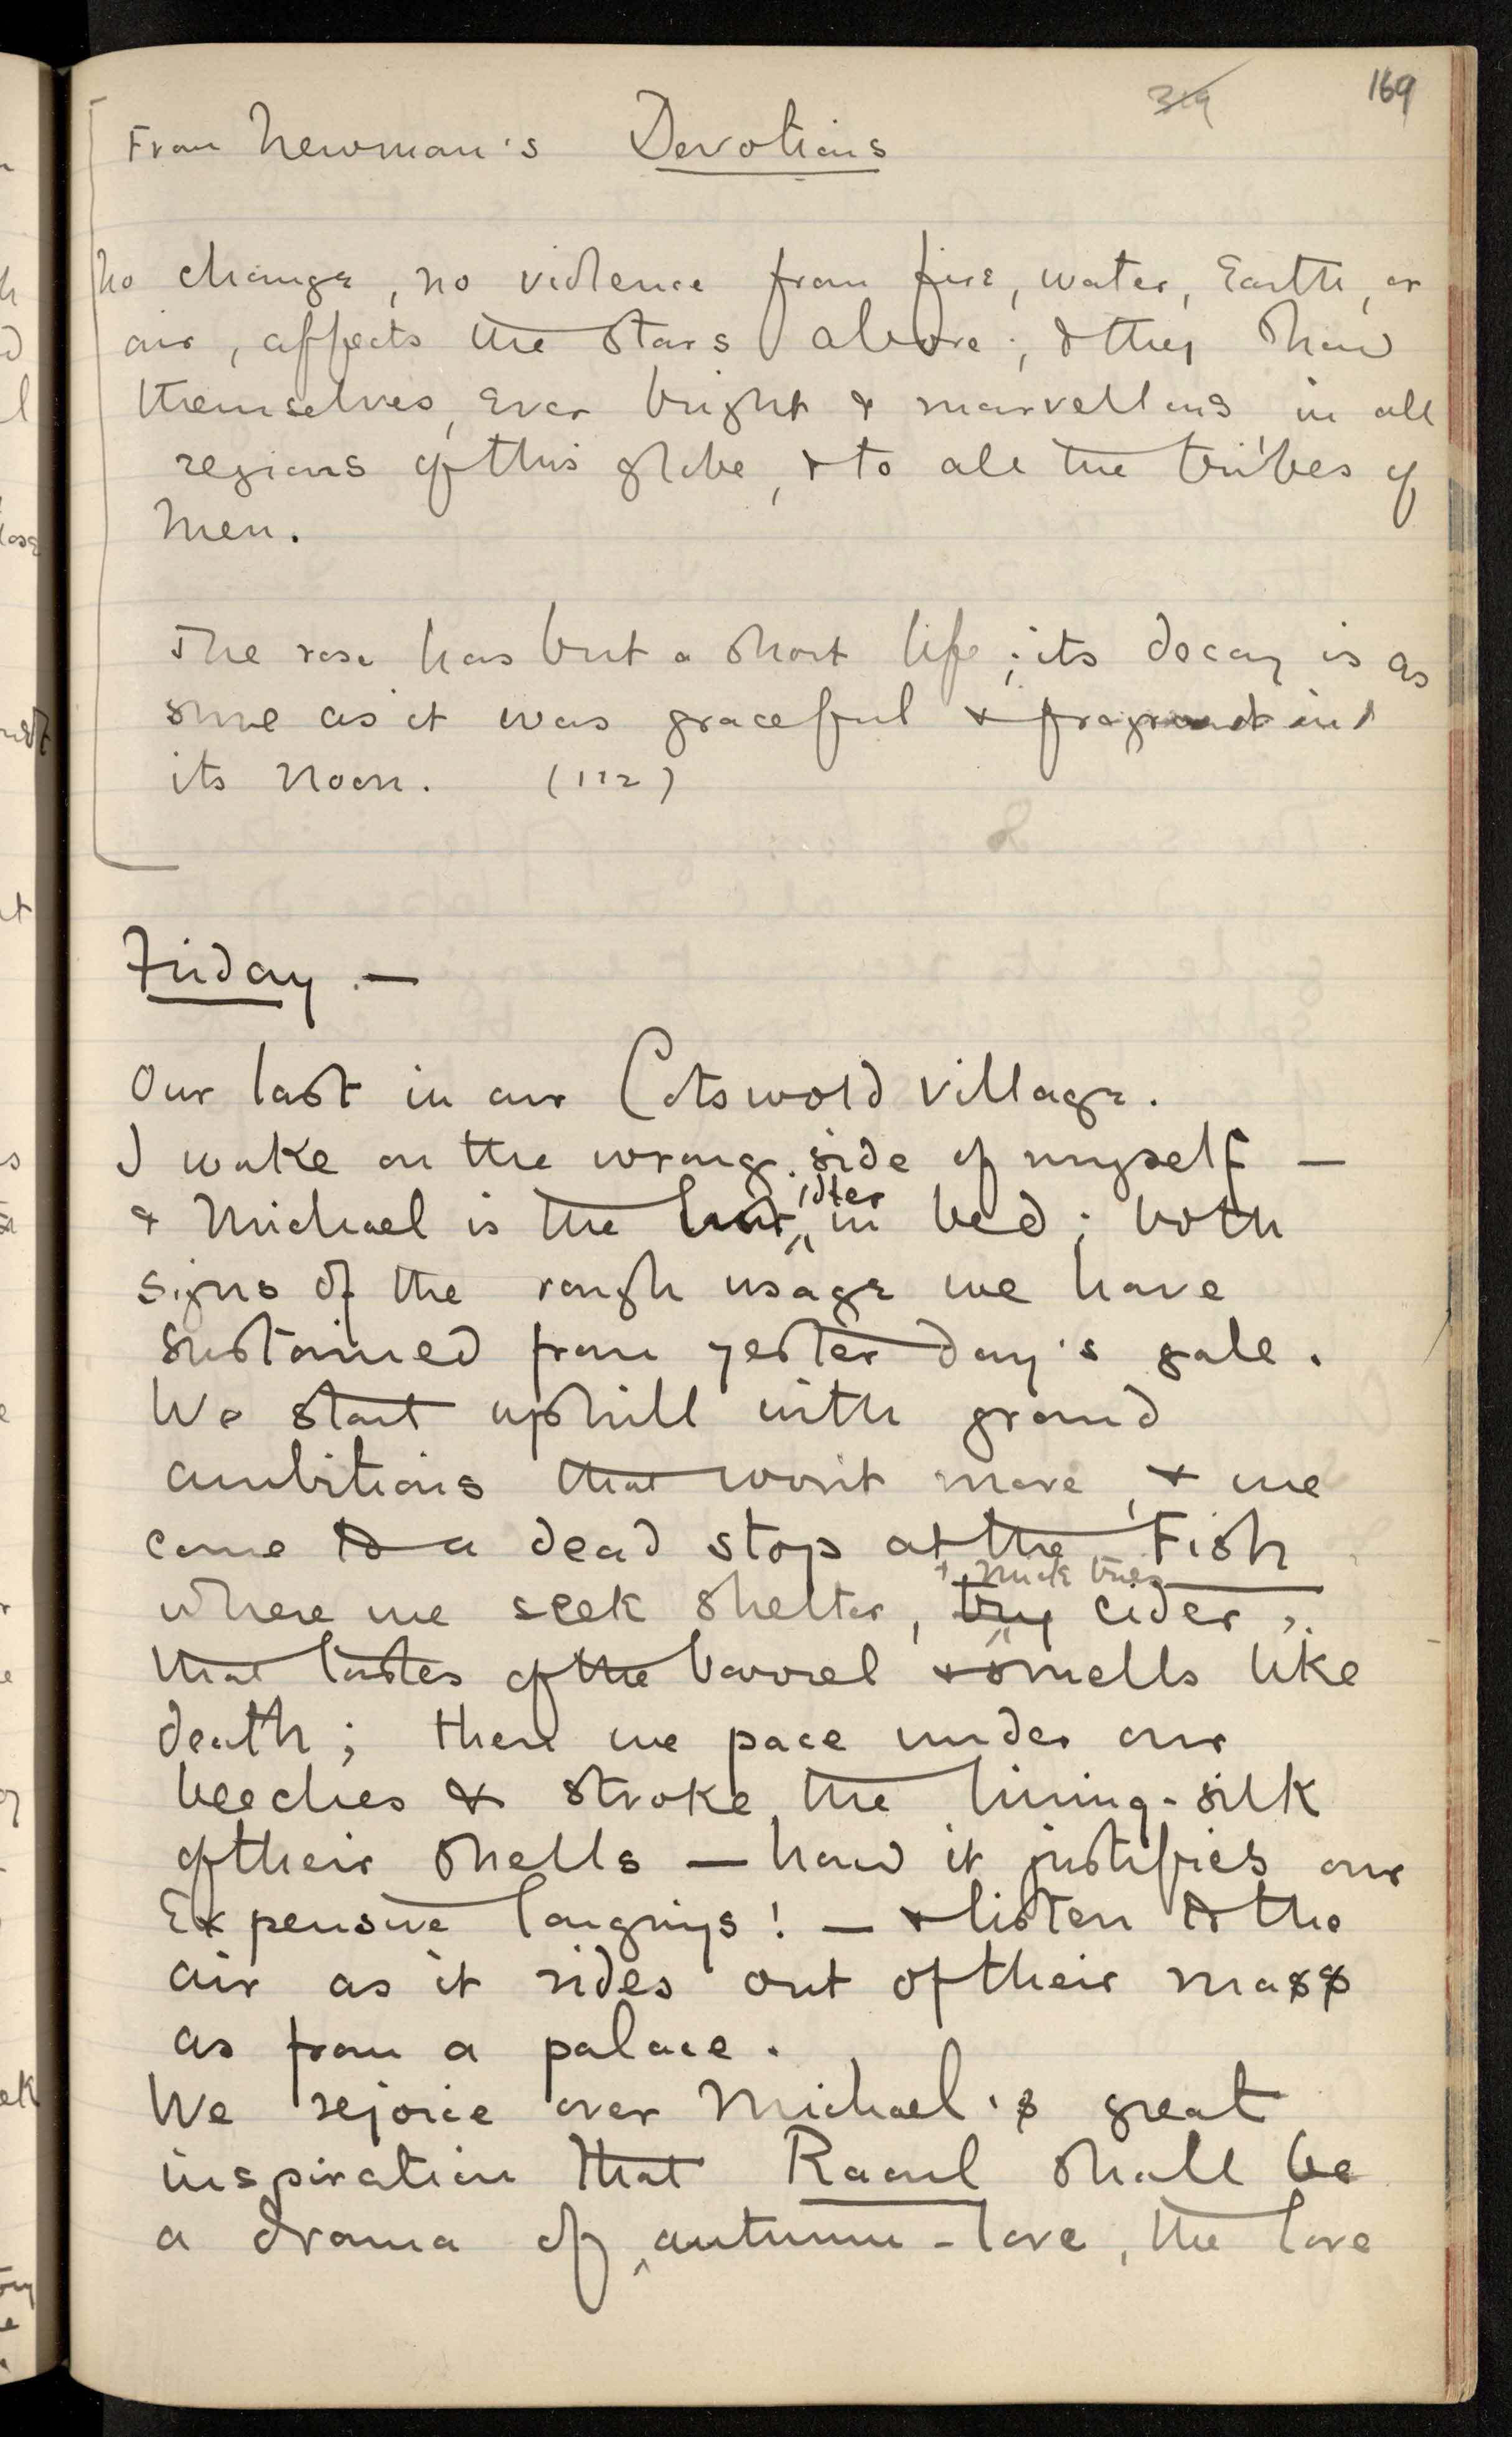 319 169
From Newman's Devotions
No change, no violence from fire, water, Earth, or
air, affects the stars above; & they show
themselves, Ever bright & marvellous in all
regions of this globe, & to all the tribes of
Men.
The rose has but a short life; its decay is as
sure as it was graceful & fragrant in
its noon. (112)
Friday. —
Our last in our Cotswold village.
I wake on the wrong side of myself —
& Michael is the later in bed; both
signs of the rough usage we have
sustained from yesterday's gale.
We start uphill with grand
ambitions that won't move, & we
come to a dead stop at the Fish
+ Mick tries
where we seek shelter, try cider,
that tastes of the barrel & smells like
death; then we pace under our
beeches & stroke the lining-silk
of their shells — how it justifies our
Expensive longings! — & listen to the
air as it rides out of their mass
as from a palace.
We rejoice over Michael's great
inspiration that Raoul shall be
a drama of autumn-love, the love